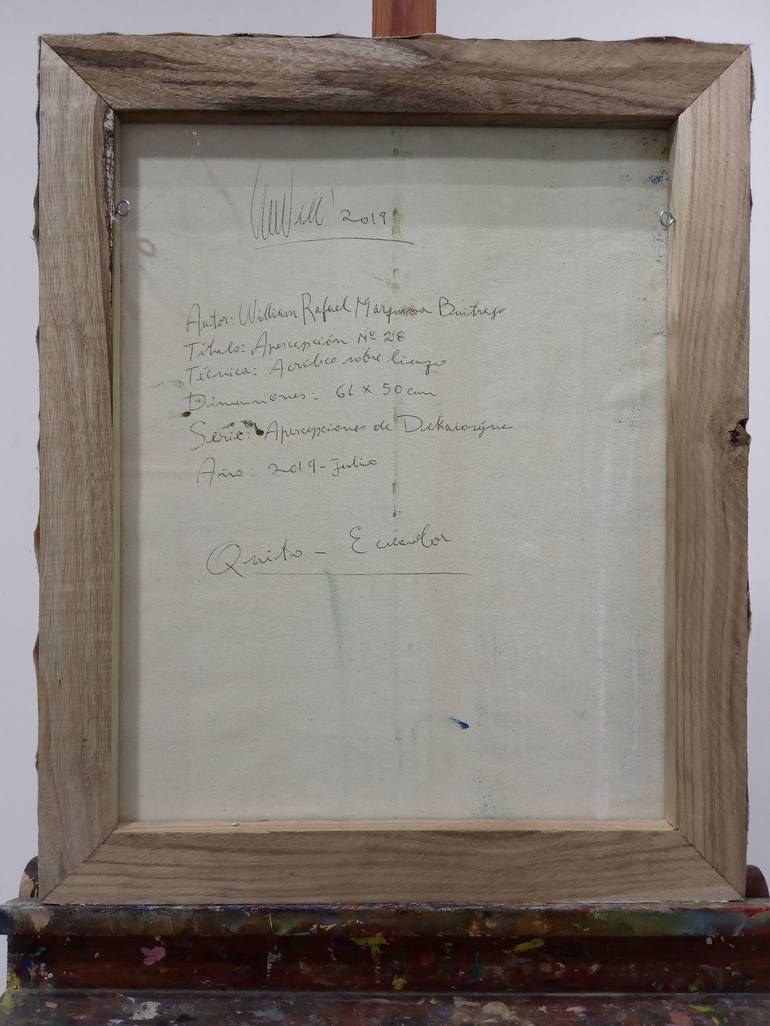 Will' 2019
Autor: William Rafael Marquina Buitrago
Título: Apercepción Nº 28
Técnica: Acrílico sobre lienzo
Dimensiones: 61 x 50 cm
Serie: Apercepciones de Dikaiosýne
Año: 2019 - Julio
Quito - Ecuador